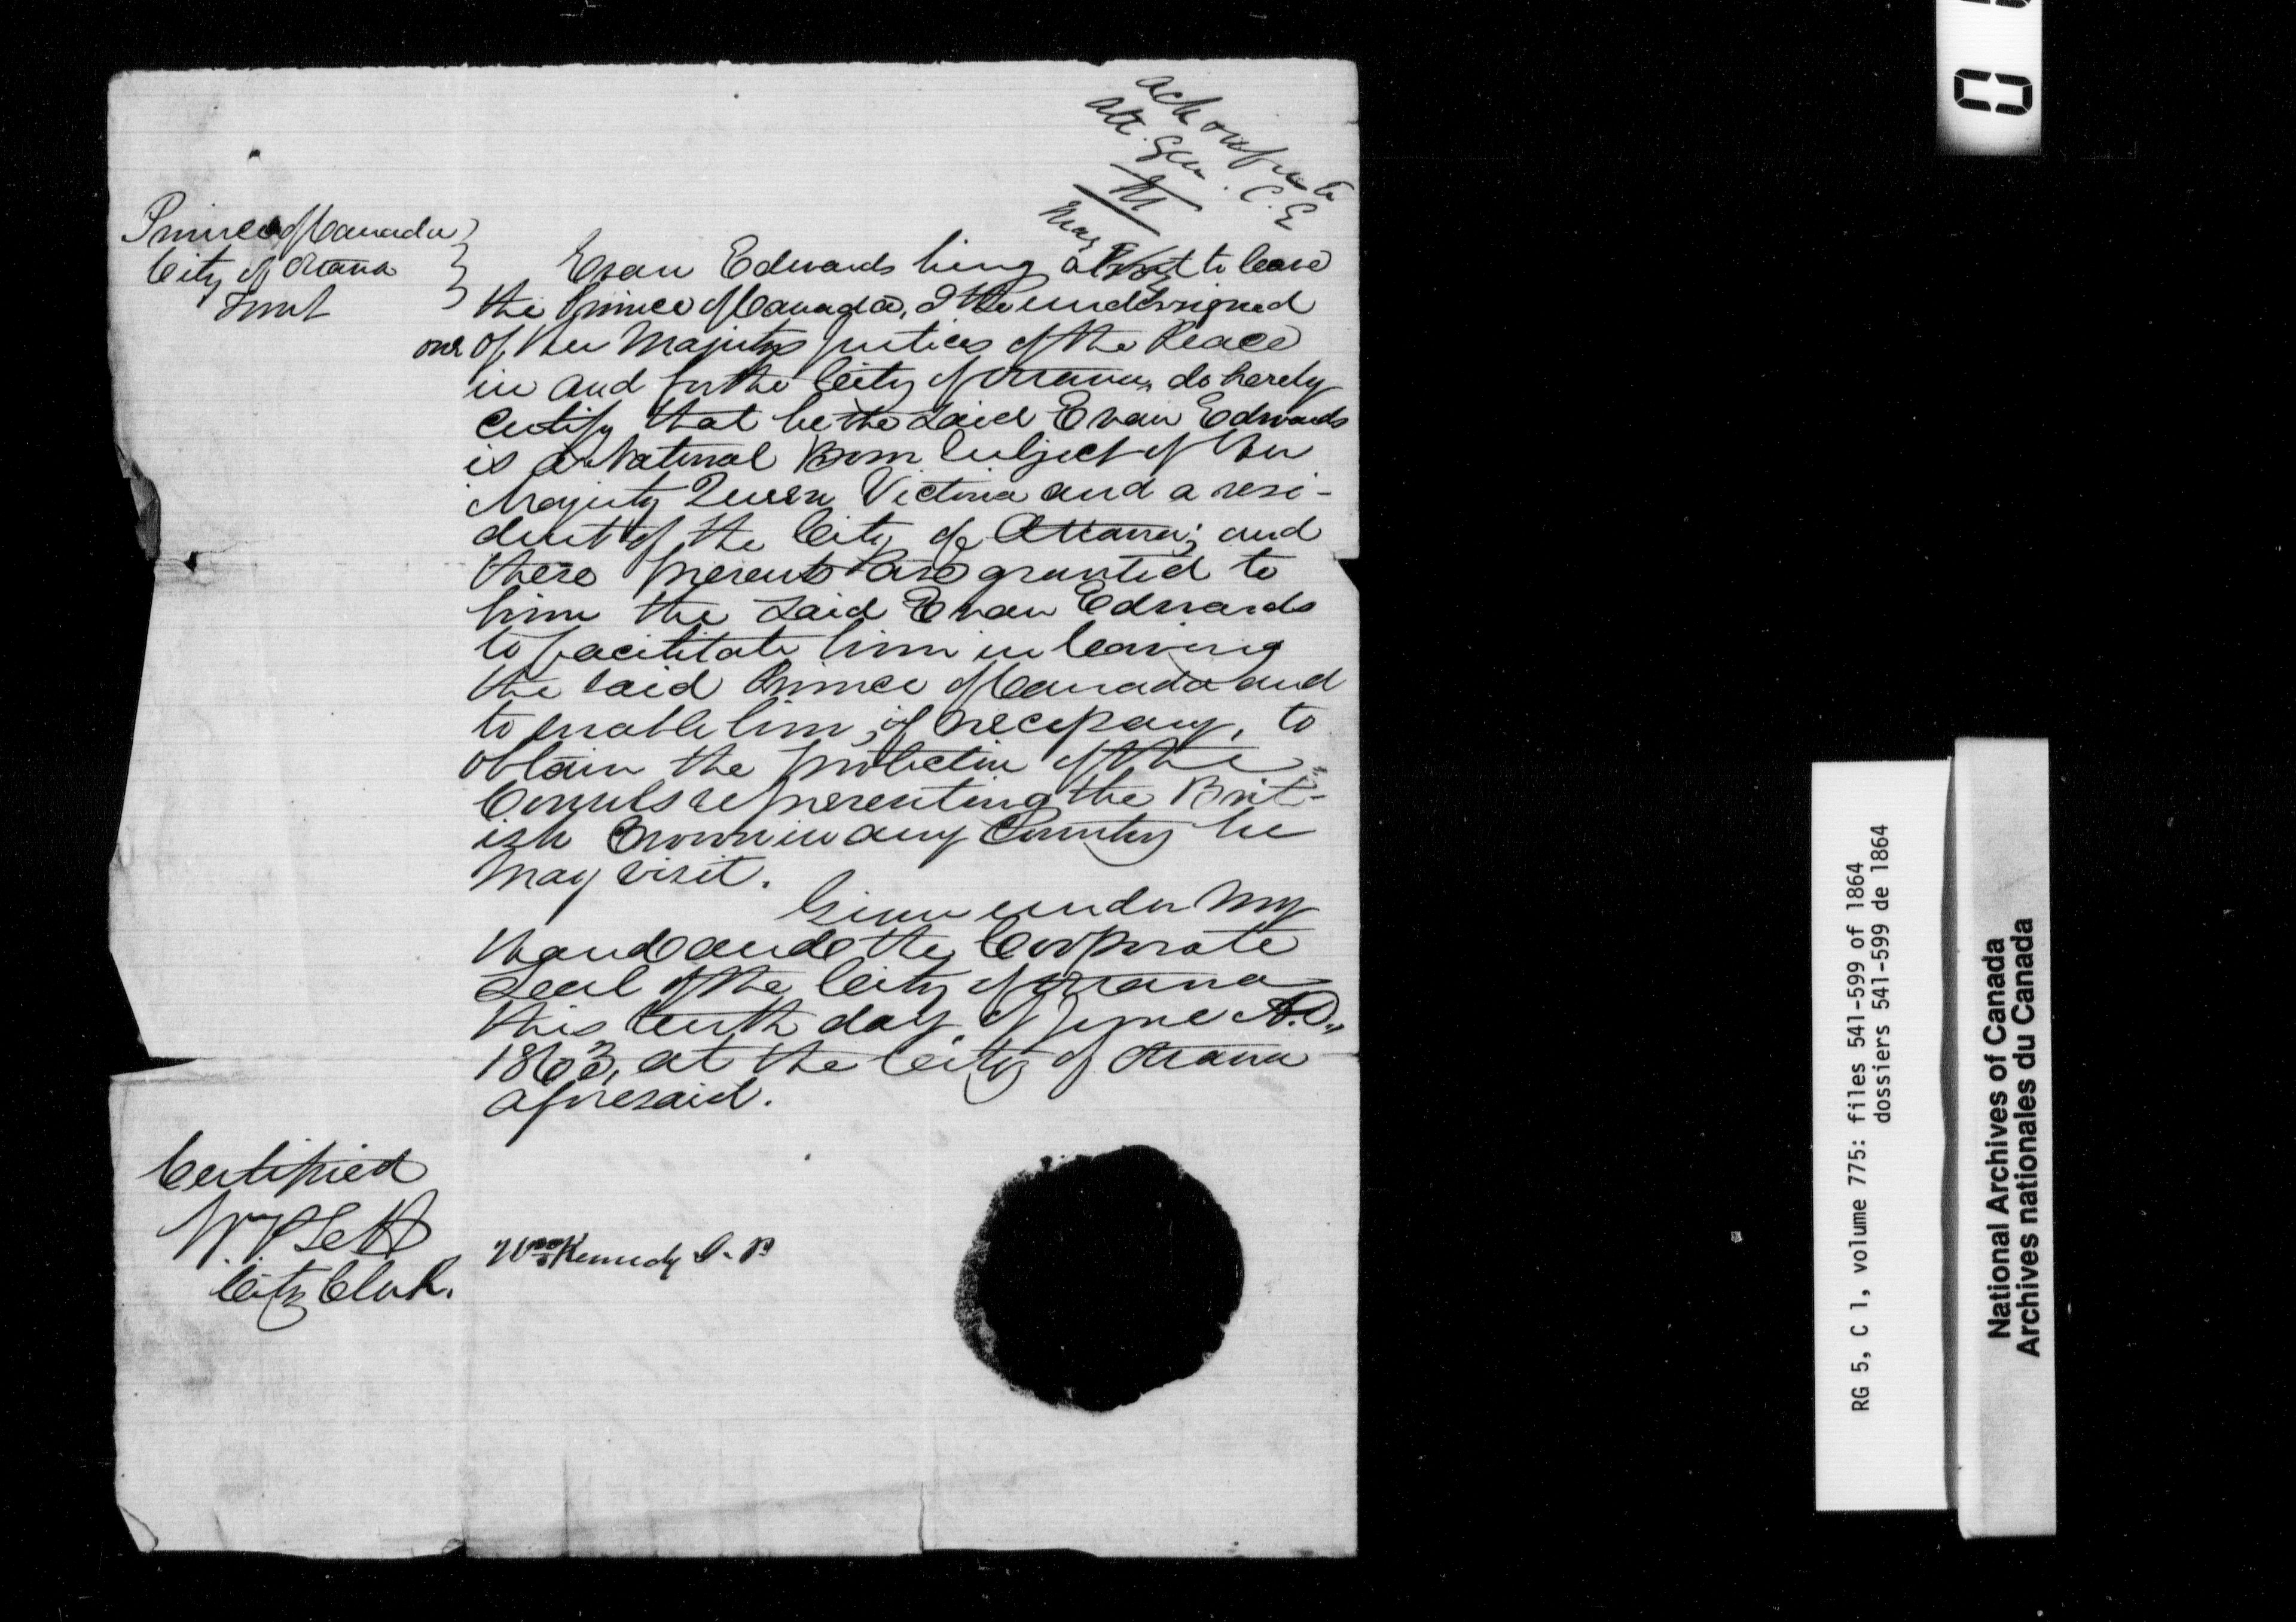 Ack & refer to
Att. Gen. C. E
May
Province of Canada
City of Ottawa
To wit
Evan Edwards being about to leave
the Province of Canada, I the undersigned
one of Her Majesty's Justices of the Peace
in and for the City of Ottawa, do hereby
certify that he the said Evan Edwards
is a Natural Born Subject of Her
Majesty Queen Victoria and a resi-
dent of the City of Ottawa; and
these presents are granted to
him the said Evan Edwards
to facilitate him in leaving
the said Province of Canada and
to enable him, if necessary, to
obtain the protection of the
Consuls representing the Brit-
ish Crown in any Country he
may visit.
Given under my
Hand and the Corporate
Seal of the City of Ottawa
this tenth day of June A.D.,
1863, at the City of Ottawa
aforesaid.
Certified
Wm P Lett
City Clerk.
Wm Kennedy J. P
RG 5, C 1, volume 775: files 541-599 of 1864
dossiers 541-599 de 1864
National Archives of Canada
Archives nationales du Canada